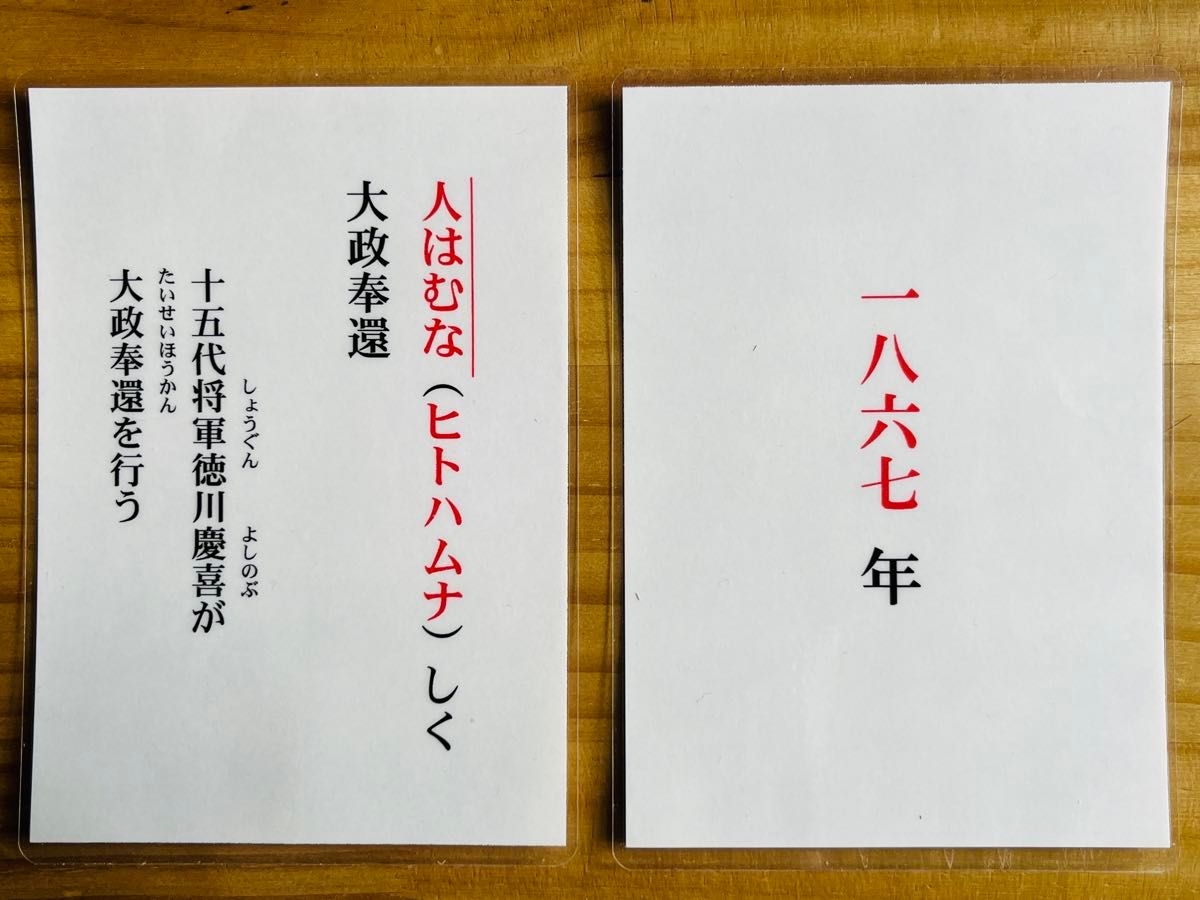 人はむな（ヒトハムナ）しく
大政奉還
しょうぐん　よしのぶ
十五代将軍徳川慶喜が
たいせいほうかん
大政奉還を行う
一八六七 年